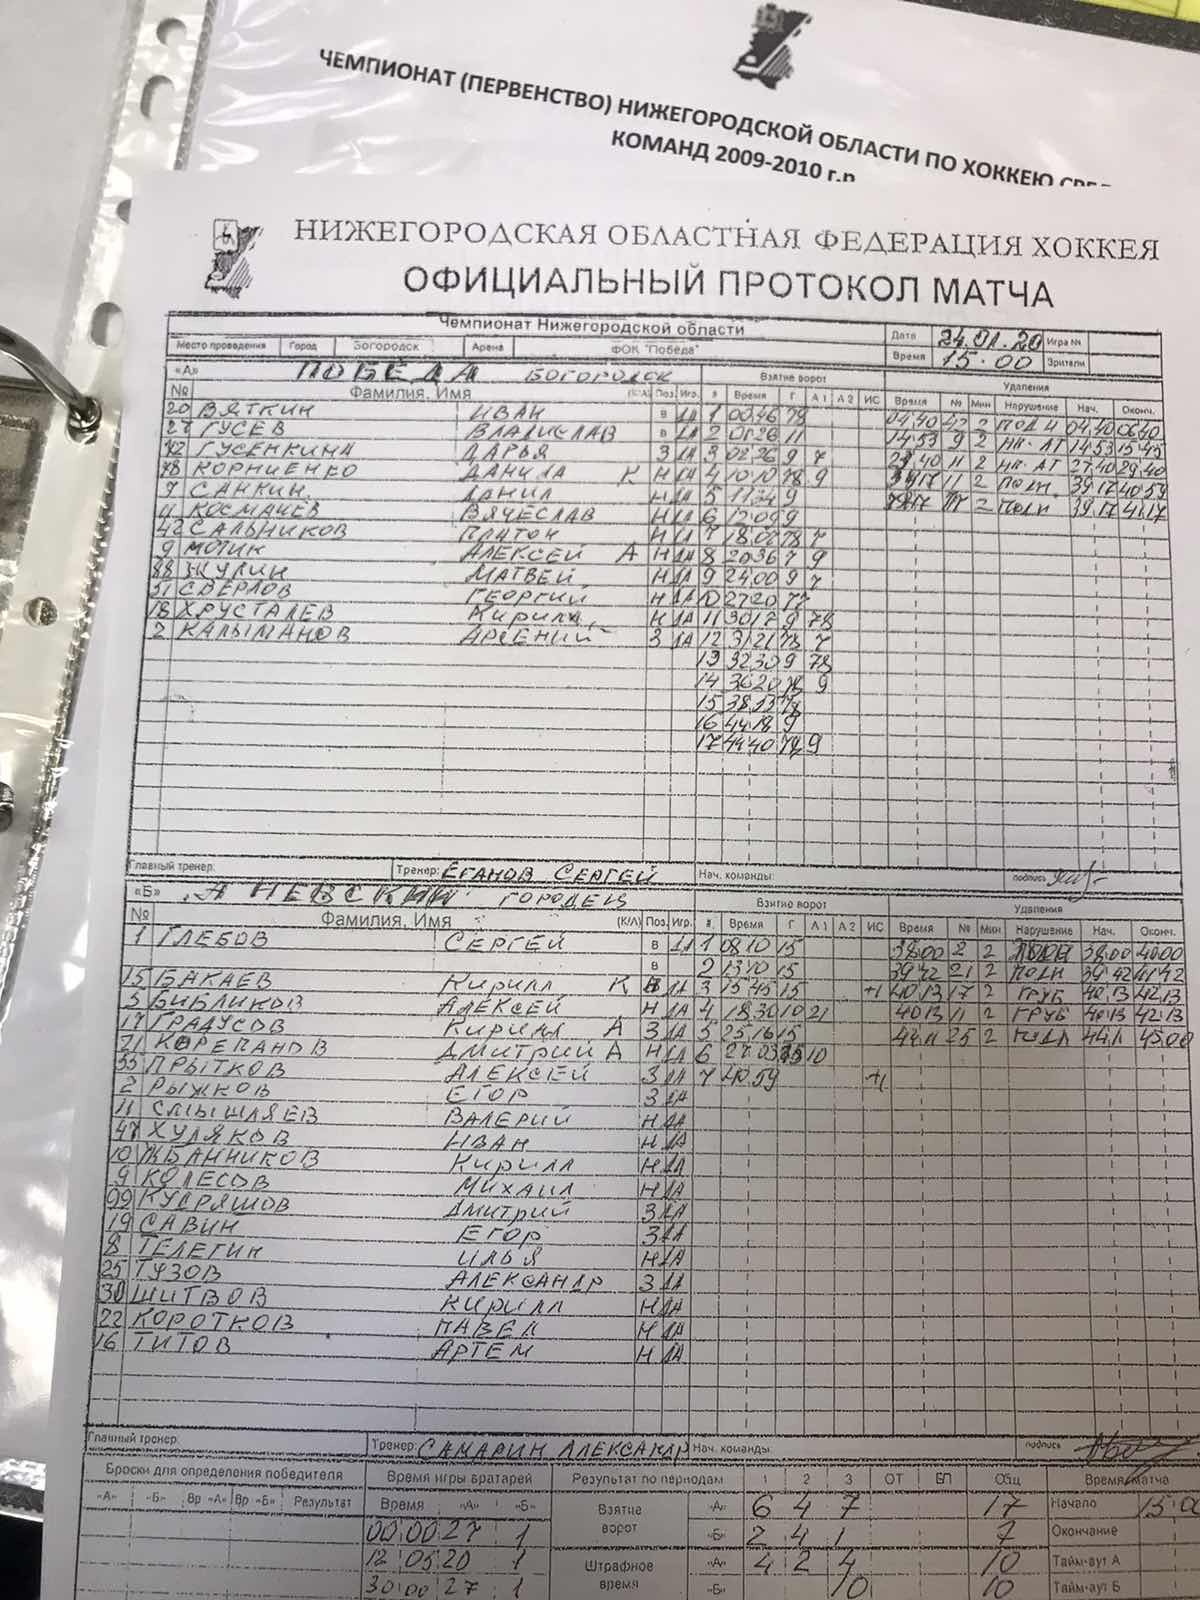 ЧЕМПИОНАТ (ПЕРВЕНСТВО) НИЖЕГОРОДСКОЙ ОБЛАСТИ ПО ХОККЕЮ
КОМАНД 2009-2010 г.р
НИЖЕГОРОДСКАЯ ОБЛАСТНАЯ ФЕДЕРАЦИЯ ХОККЕЯ
ОФИЦИАЛЬНЫЙ ПРОТОКОЛ МАТЧА
Чемпионат Нижегородской области Дата 24.01.20 Игра №
Место проведения Город Богородск Арена ФОК "Победа" Время 15.00 Зрители
«А» ПОБЕДА БОГОРОДСК Взятие ворот Удаления
№ Фамилия, Имя (К/А) Поз. Игр. # Время Г А 1 А 2 ИС Время № Мин Нарушение Нач. Оконч.
20 ВЯТКИН ИВАН В ДА 1 00 46 78 04.40 42 2 04.40 06.40
27 ГУСЕВ ВЛАДИСЛАВ В ДА 2 01 26 11 14.53 9 2 НП. АТ 14.53 15.45
72 ГУСЕНКИНА ДАРЬЯ З ДА 3 02 26 9 7 27.40 11 2 НП. АТ 27.40 29.40
78 КОРНИЕНКО ДАНИЛА К Н ДА 4 10 10 78 9 39.17 11 2 39.17 40.59
7 САНКИН ДАНИЛ Н ДА 5 11 34 9 39.17 2 39.17 41.17
11 КОСМАЧЕВ ВЯЧЕСЛАВ Н ДА 6 12 09 9
42 САЛЬНИКОВ ПЛАТОН Н ДА 7 18 02 78 7
9 МОТИН АЛЕКСЕЙ А Н ДА 8 20 36 7 9
88 ЖУЛИН МАТВЕЙ Н ДА 9 24 00 9 7
51 СВЕРЛОВ ГЕОРГИЙ Н ДА 10 27 20 77
18 ХРУСТАЛЕВ КИРИЛЛ Н ДА 11 30 17 9 78
2 КАЛЫМАНОВ АРСЕНИЙ З ДА 12 31 21 78 7
13 32 30 9 78
14 36 20 78 9
15 38 13 78
16 44 18 9
17 44 40 78 9
Главный тренер: Тренер: ЕГАНОВ СЕРГЕЙ Нач. команды: подпись
«Б» А НЕВСКИЙ ГОРОДЕЦ Взятие ворот Удаления
№ Фамилия, Имя (К/А) Поз. Игр. # Время Г А 1 А 2 ИС Время № Мин Нарушение Нач. Оконч.
1 ГЛЕБОВ СЕРГЕЙ В ДА 1 08 10 15 38.00 2 2 38.00 40.00
В 2 13 10 15 39.42 21 2 39.42 41.42
15 БАКАЕВ КИРИЛЛ К ДА 3 15 45 15 +1 40 13 17 2 ГРУБ 40.13 42.13
5 БИБЛИКОВ АЛЕКСЕЙ Н ДА 4 18 30 10 21 40 13 11 2 ГРУБ 40.13 42.13
17 ГРАДУСОВ КИРИЛЛ А З ДА 5 25 16 15 44.11 25 2 44.11 45.00
21 КОРЕПАНОВ ДМИТРИЙ А Н ДА 6 27 03 15 10
55 ПРЫТКОВ АЛЕКСЕЙ З ДА 7 40 59 +1
2 РЫЖКОВ ЕГОР З ДА
11 СМЫШЛЯЕВ ВАЛЕРИЙ Н ДА
47 ХУДЯКОВ ИВАН Н ДА
10 ЖБАННИКОВ КИРИЛЛ Н ДА
9 КОЛЕСОВ МИХАИЛ Н ДА
99 КУДРЯШОВ ДМИТРИЙ З ДА
19 САВИН ЕГОР З ДА
8 ТЕЛЕГИН ИЛЬЯ Н ДА
25 ТУЗОВ АЛЕКСАНДР З ДА
30 ШИТВОВ КИРИЛЛ Н ДА
22 КОРОТКОВ ПАВЕЛ Н ДА
16 ТИТОВ АРТЕМ Н ДА
Главный тренер: Тренер: САМАРИН АЛЕКСАНДР Нач. команды: подпись
Броски для определения победителя Время игры вратарей Результат по периодам 1 2 3 ОТ БП Общ Время матча
«А» «Б» Вр «А» Вр «Б» Результат Время «А» «Б» Взятие ворот «А» 6 4 7 17 Начало 15 00
00 00 27 1 «Б» 2 4 1 7 Окончание
12 05 20 1 Штрафное время «А» 4 2 4 10 Тайм-аут А
30 00 27 1 «Б» 10 10 Тайм-аут Б